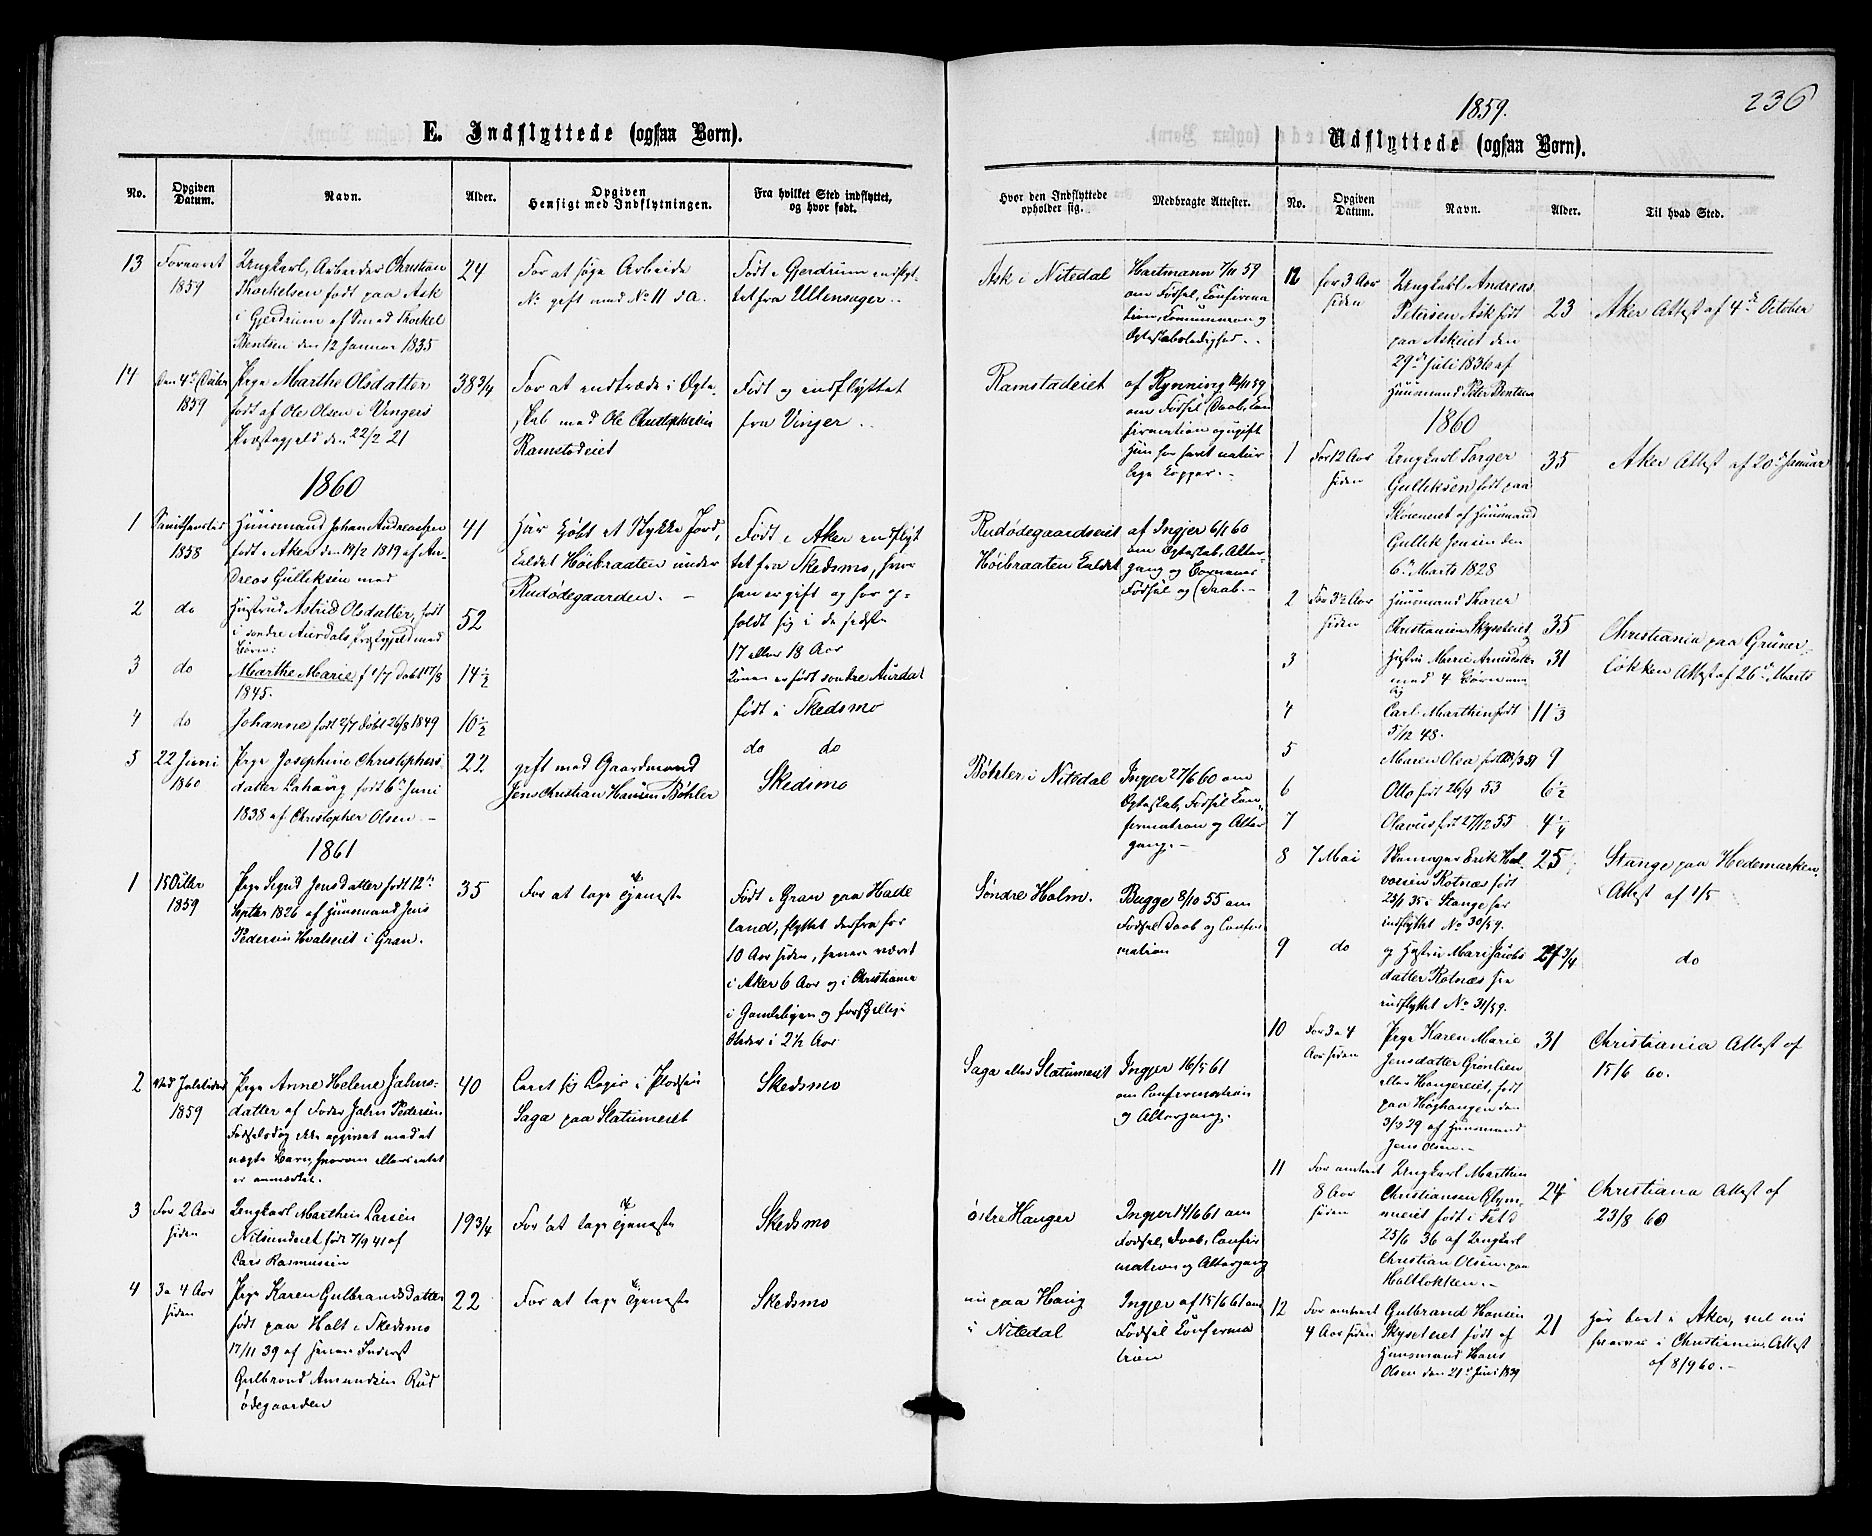 236
1859.
E. Indflyttede (ogsaa Børn).
Udflyttede (ogsaa Børn).
No.
Opgiven Datum.
Navn.
Alder.
Opgiven Hensigt med Indflytningen.
Fra hvilket Sted indflyttet, og hvor født.
Hvor den Indflyttede opholder sig.
Medbragte Attester.
No.
Opgiven Datum.
Navn.
Alder.
Til hvad Sted.
13
1859
Ungkarl, Arbeider Christian
Thorkelsen født paa Ask
i Gjerdrum af Smed Thorkel
Bentsen den 12 Januar 1835
24
For at søge Arbeide
No gift med No 11 d.a.
Født i Gjerdrum indflyt-
tet fra Ullensager.
Ask i Nitedal
Hartmann 7/11 59
om Fødsel, Confirma
tion, Communion og
Ægteskabsledighed.
14
Den 4de Octbr
1859
Pige Marthe Olsdatter
født af Ole Olsen i Vingers
Præstegjeld den 22/2 21
38 3/4
For at indtræde i Ægte-
skab med Ole Christophersen
Ramstadeiet
Født og indflyttet
fra Vinger
Ramstadeiet
af Rynning 12/11 59
om Fødsel Daab, Con
firmation og ugift
Hun har havt natur
lige Kopper.
1860
1
1858
Huusmand Johan Andreassen
født i Aker den 14/2 1819 af An-
dreas Gulliksen med
41
Har kjøbt et Stykke Jord,
kaldet Høibraaten under
Rudødegaarden.
Født i Aker indflyt
tet fra Skedsmo, hvor
han er gift og har op-
holdt sig i de sidste
17 eller 18 Aar
Rudødegaardseiet
Høibraaten kaldet
af Ingier 6/1 60
om Ægteskab, Alter
gang og Børnenes
Fødsel og Daab.
2
do
Hustrud Astrid Olsdatter, født
i søndre Aurdals Præstegjeld med
Børn:
52
Konen er født søndre Aurdal
3
do
Marthe Marie f 1/7 døbt 17/8
1845.
14 1/2
født i Skedsmo
4
do
Johanne født 2/7 døbt 26/8 1849
10 1/2
do do
5
22 Juni
1860
Pige Josephine Christophers
datter Lahaug født 6te Juni
1838 af Christopher Olsen
22
gift med Gaardmand
Jens Christian Hansen Bøhler
Skedsmo
Bøhler i Nitedal
Ingier 27/6 60 om
Ægteskab, Fødsel Con-
firmation og Alter
gang.
1861
1
15 Octbr
1859
Pige Sigrid Jensdatter født 12te
Septbr 1826 af Huusmand Jens
Pedersen Hvalseiet i Gran.
35
For at tage Tjeneste
Født i Gran paa Hade
land, flyttet derfra for
10 Aar siden, senere været
i Aker 6 Aar og i Christiania
i Gamlebyen og forskjellige
Steder i 2 1/2 Aar
Søndre Holm.
Bugge 8/10 55 om
Fødsel Daab og Confir
mation
2
Ved Juletider
1859
Pige Anne Helene Jahns-
datter af Fader Jahn Pedersen
Fødselsdag ikke opgivet med et
uægte Barn, hvorom ellers intet
er anmærket.
40
Saga paa Slatumeiet
Skedsmo
Saga eller Slatumeiet
Ingier 16/5 61
om Confirmation
og Altergang.
3
For 2 Aar
siden
Ungkarl Marthin Larsen
Nitsundeiet født 7/9 41 af
Lars Rasmussen
19 3/4
For at tage Tjeneste
Skedsmo
østre Hauger
Ingier 14/6 61 om
Fødsel, Daab, Confir
mation og Altergang
4
3 a 4 Aar
siden
Pige Karen Gulbrandsdatter
født paa Holt i Skedsmo
17/11 39 af senere Inderst
Gulbrand Amundsen Rud
ødegaarden
22
For at tage Tjeneste
Skedsmo
nu paa Haug
i Nitedal
Ingier af 15/6 61 om
Fødsel Confirma
tion
12
for 3 Aar
siden
Ungkarl Andreas
Petersen Ask født
paa Askeiet den
29de Juli 1836 af
Huusmand Peter Bentsen
23
Aker Attest af 4de October
1860
1
For 12 Aar
siden
Ungkarl Torger
Gulliksen født paa
Huusmand
Gullik Jensen den
6te Marts 1828
35
Aker Attest af 20de Januar
2
For 3 1/2 Aar
siden
Huusmand Thorer
Christiansen Skyseteiet
35
Christiania paa Grüner-
løkken Attest af 26de Marts
3
Hustru Marie Arnesdatter
med 4 Børn
31
4
Carl Marthin født
5/12 48.
11 1/3
5
Maren Olea født 13/3 51
9
6
Otto født 26/9 53
6 1/2
7
Olavus født 27/12 55
4 1/4
8
7 Mai
Skomager Erik Hal
vorsen Rotnæs født
23/1 35 i Stange her
indflyttet No 30/59.
25
Stange paa Hedemarken
Attest af 1/5
9
do
og Hustru Mari Jacobs
datter Rotnæs her
indflyttet No 31/59.
27 3/4
do
10
For 3 a 4
Aar siden
Pige Karen Marie
Jensdatter Grønlien
eller Haugereiet, født
paa Høghaugen den
3/3 29 af Huusmand
Jens Olsen.
31
Christiania Attest af
15/6 60.
11
For omtrent
8 Aar
siden
Ungkarl Marthin
Christiansen Glom-
meiet født i Fet d
23/6 36 af Ungkarl
Christian Olsen paa
Holtløkken.
24
Christiania Attest af
23/8 60
12
For omtrent
4 Aar siden
Gulbrand Hansen
Skyseteiet født af
Huusmand Hans
Olsen den 21de Juni 1839
21
Har boet i Aker, vel nu
i Christiania. Attest
af 8/9 60.